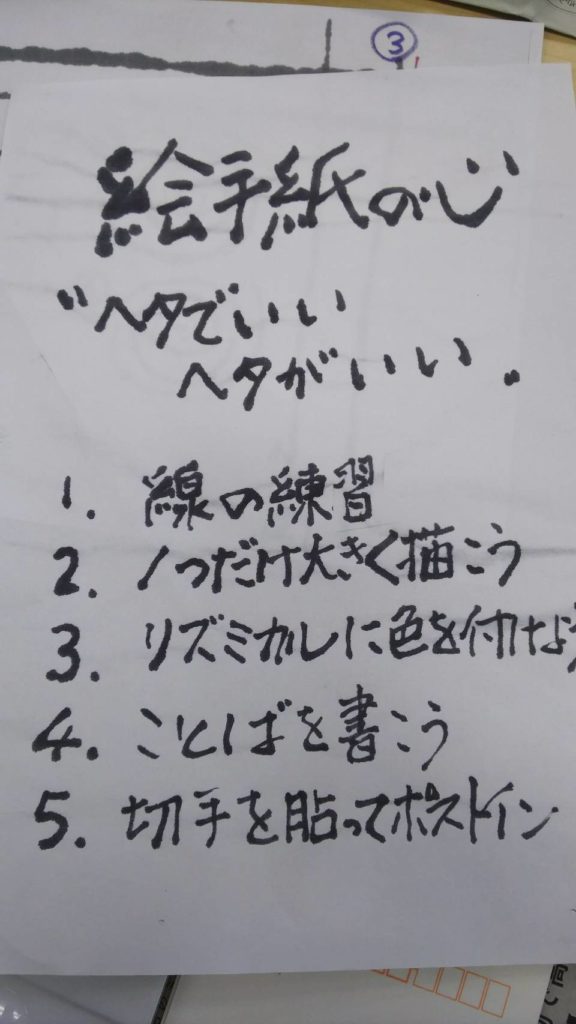 ③
絵手紙の心
"ヘタでいい
ヘタがいい"
1. 線の練習
2. 1つだけ大きく描こう
3. リズミカルに色を付けよう
4. ことばを書こう
5. 切手を貼ってポストイン